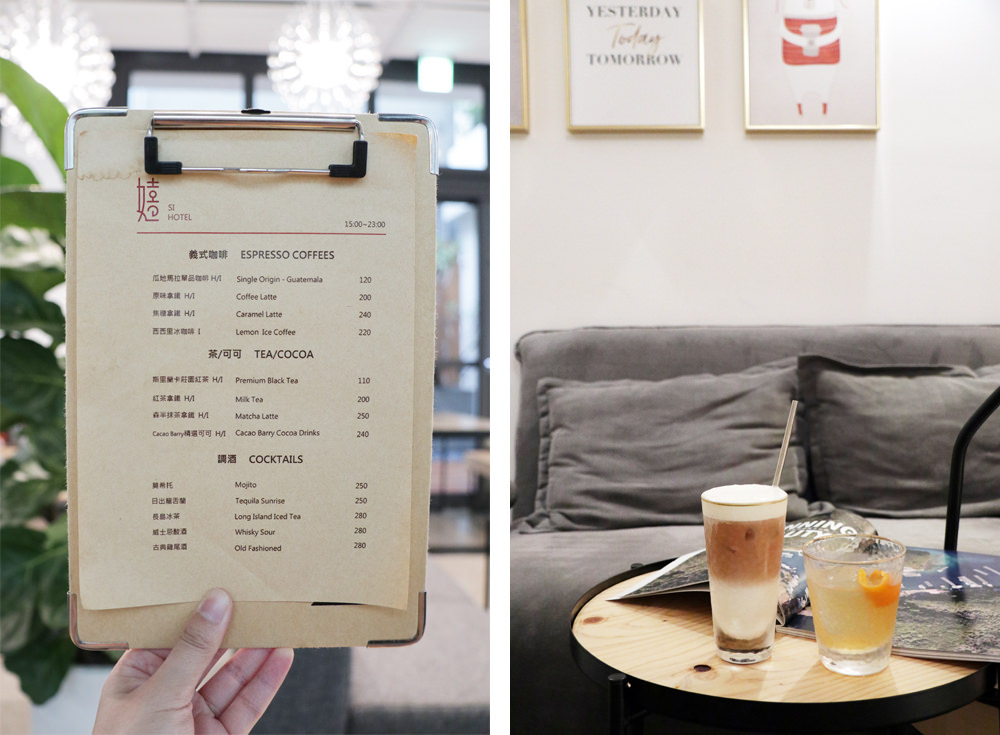 嬉 SI
HOTEL
15:00~23:00
義式咖啡 ESPRESSO COFFEES
瓜地馬拉單品咖啡 H/I Single Origin - Guatemala 120
原味拿鐵 H/I Coffee Latte 200
焦糖拿鐵 H/I Caramel Latte 240
西西里冰咖啡 I Lemon Ice Coffee 220
茶/可可 TEA/COCOA
斯里蘭卡莊園紅茶 H/I Premium Black Tea 110
紅茶拿鐵 H/I Milk Tea 200
森半抹茶拿鐵 H/I Matcha Latte 250
Cacao Barry精選可可 H/I Cacao Barry Cocoa Drinks 240
調酒 COCKTAILS
莫希托 Mojito 250
日出龍舌蘭 Tequila Sunrise 250
長島冰茶 Long Island Iced Tea 280
威士忌酸酒 Whisky Sour 280
古典雞尾酒 Old Fashioned 280
YESTERDAY
Today
TOMORROW